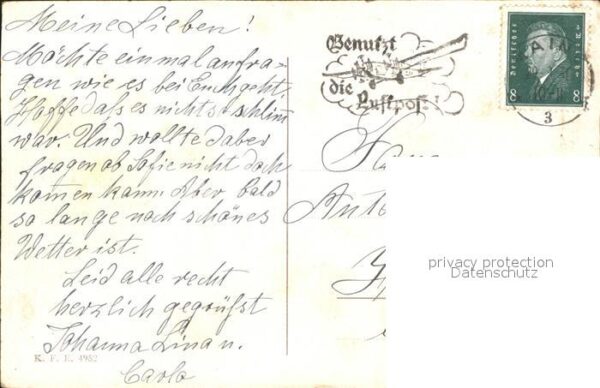 Meine Lieben!
Möchte einmal anfra-
gen wie es bei Euch geht.
Hoffe dass es nichts schlim
war. Und wollte daber
fragen ob Sofie nicht doch
kommen kann. Aber bald
so lange noch schönes
Wetter ist.
Seid alle recht
herzlich gegrüßt
Johanna Lina u.
Carlo
K. F. E. 4982
Benutzt
die Luftpost!
Deutsches Reich
8 8
3
Fam
Auto
privacy protection
Datenschutz